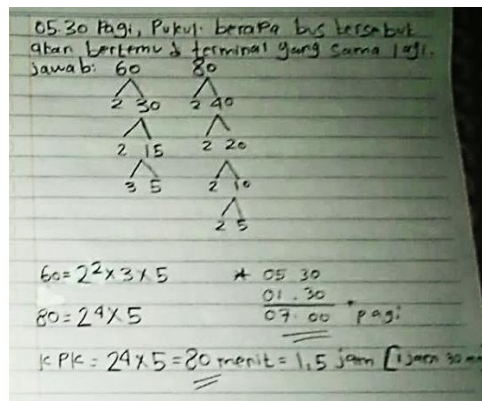 05.30 Pagi, Pukul berapa bus tersebut
akan bertemu d terminal yang sama lagi.
jawab: 60 80
2 30 2 40
2 15 2 20
3 5 2 10
2 5
60 = 2² x 3 x 5
80 = 2⁴ x 5
* 05 30
01 . 30 +
07 . 00 pagi
KPK = 24 x 5 = 80 menit = 1,5 jam [1 jam 30